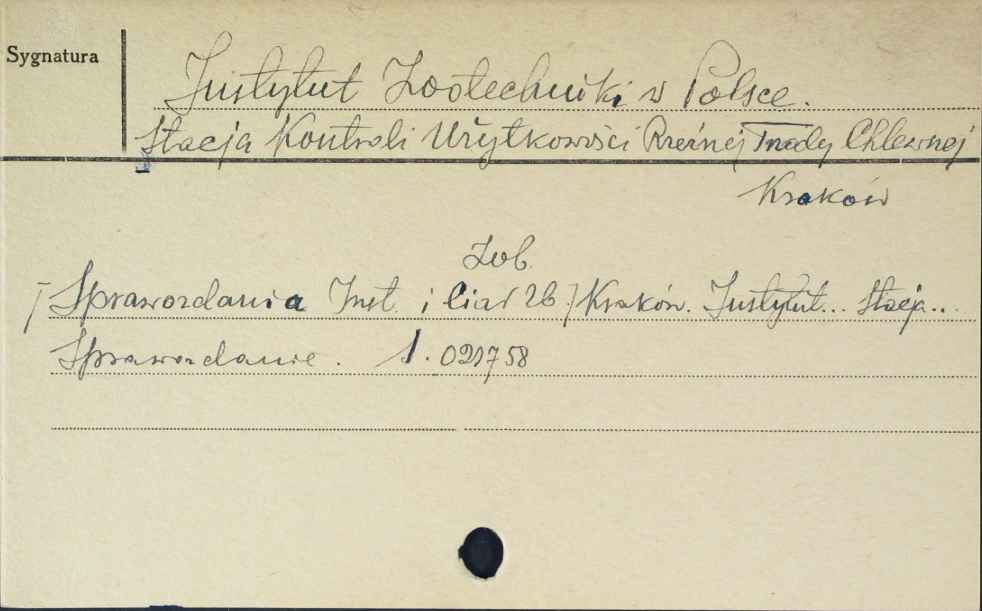 Sygnatura
Instytut Zootechniki w Polsce.
Stacja Kontroli Użytkowości Rzeźnej Trzody Chlewnej
Kraków
Zob.
/ Sprawozdania Inst. i Ciał 2b./ Kraków. Instytut... Stacja...
Sprawozdanie. 1. 021758